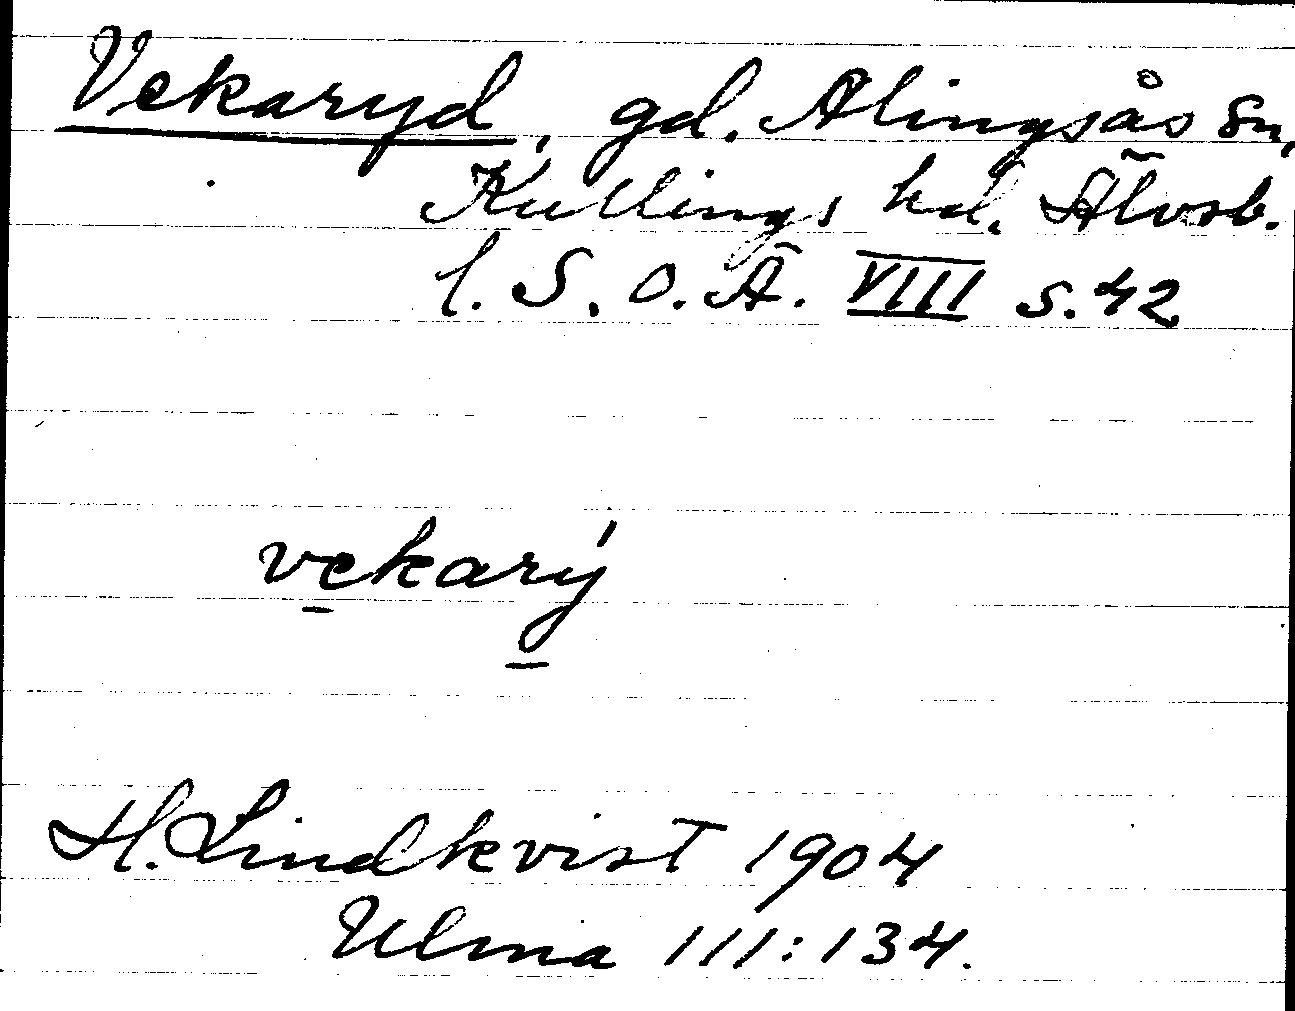 Vekaryd, gd. Alingsås sn,
Kullings hd. Älvsb.
l. S. O. Ä. VIII s. 42
vekarý
H. Lindkvist 1904
Ulma 111:134.